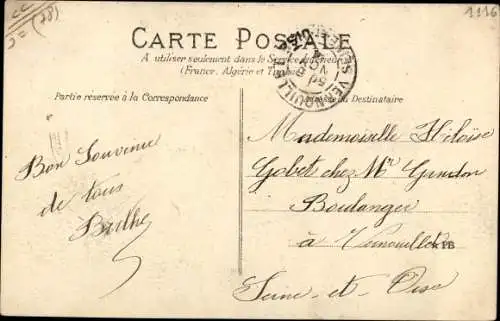 (78)
1116
CARTE POSTALE
A utiliser seulement dans le Service
(France, Algérie et
Partie réservée à la Correspondance
du Destinataire
Bon Souvenir
de tous
Mademoiselle Héloïse
Gobet chez Mr
Boulanger
à Vernouillet
Seine-et-Oise